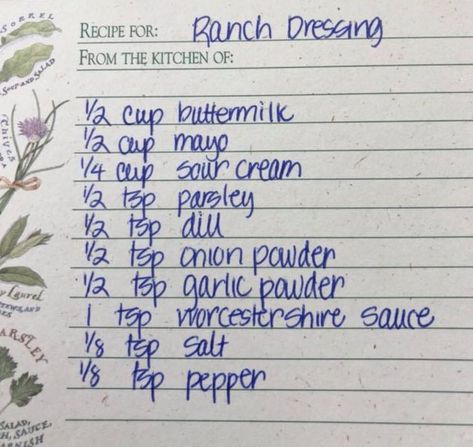 SORREL
SOUP AND SALAD
RECIPE FOR: Ranch Dressing
FROM THE KITCHEN OF:
Chives
1/2 cup buttermilk
1/2 cup mayo
1/4 cup sour cream
1/2 tsp parsley
1/2 tsp dill
1/2 tsp onion powder
1/2 tsp garlic powder
1 tsp worcestershire sauce
1/8 tsp salt
1/8 tsp pepper
Laurel
PARSLEY
SALAD,
SAUCE,